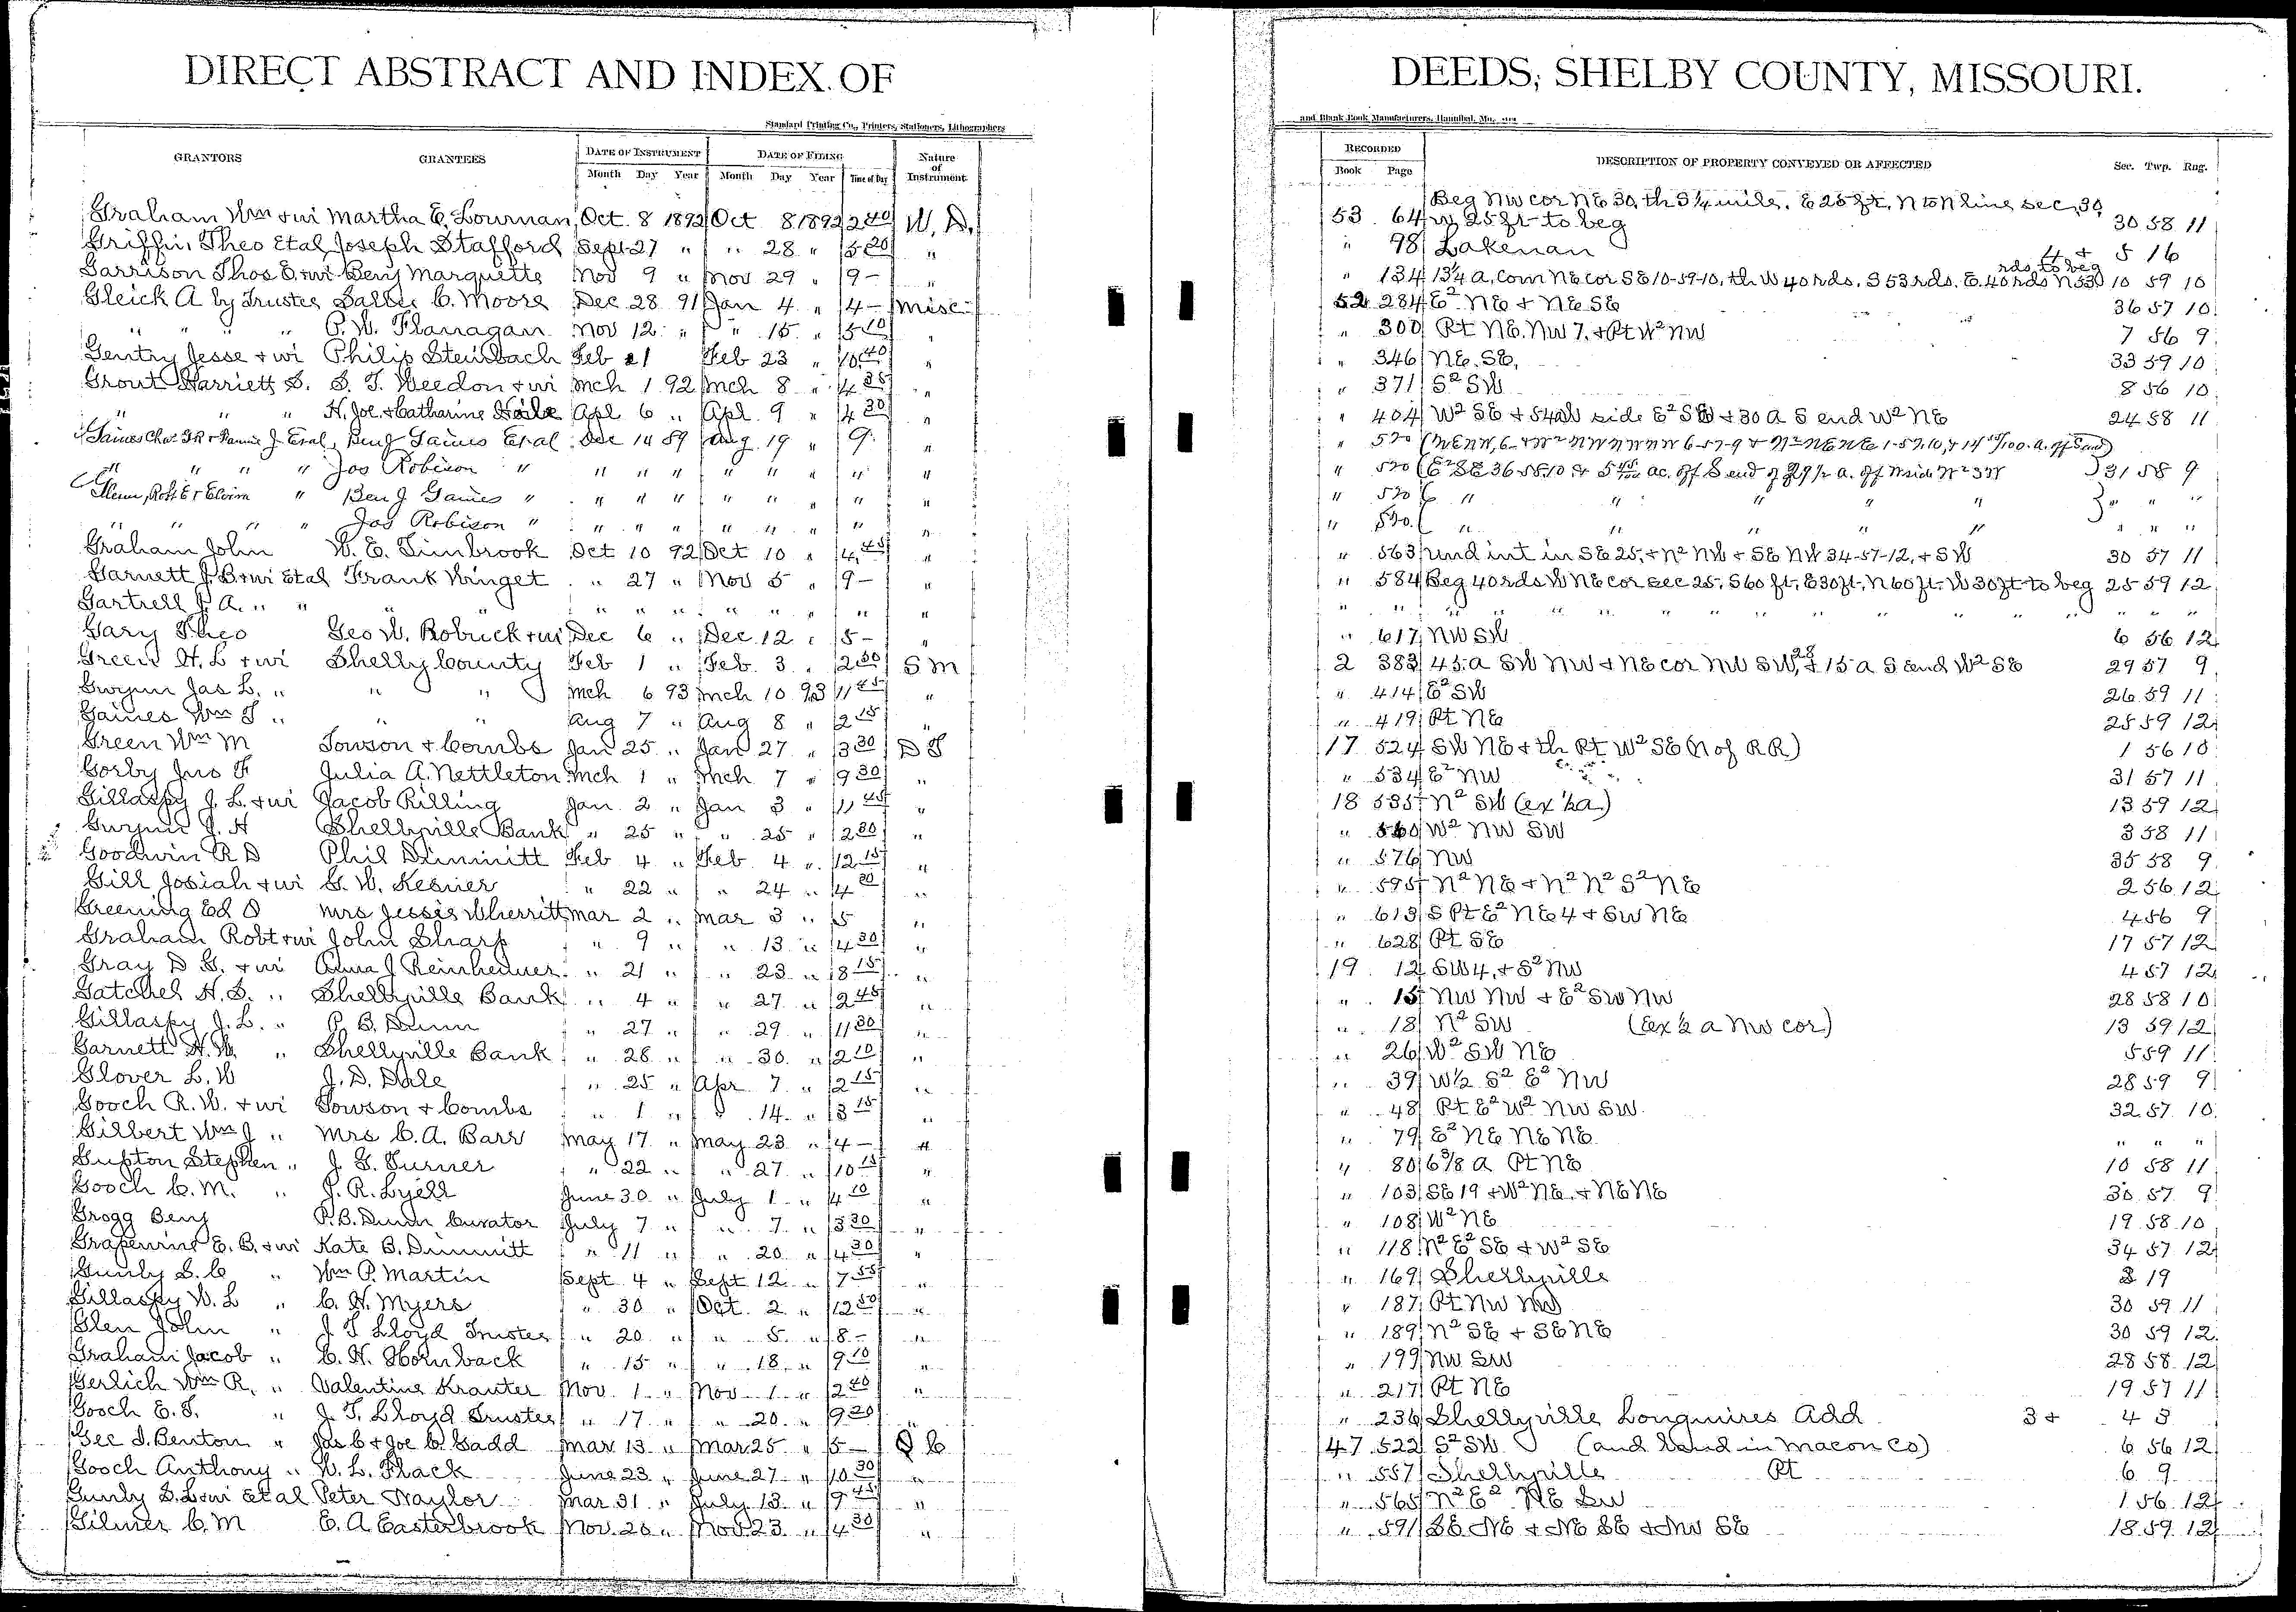 DIRECT ABSTRACT AND INDEX OF
Standard Printing Co., Printers, Stationers, Lithographers
GRANTORS GRANTEES DATE OF INSTRUMENT DATE OF FILING Nature of Instrument
Month Day Year Month Day Year Time of Day
Graham Wm & wi Martha E. Lowman Oct. 8 1892 Oct 8 1892 2 40 W. D.
Griffin, Theo Etal Joseph Stafford Sept 27 " " 28 " 5 20 "
Garrison Thos E. & wi Benj Marquette Nov 9 " Nov 29 " 9 - "
Gleick A by Trustee Sallie C. Moore Dec 28 91 Jan 4 " 4 - Misc
" " " " P. W. Flanagan Nov 12 " " 15 " 5 10 "
Gentry Jesse & wi Philip Steinbach Feb 21 Feb 23 " 10 40 "
Grout Harriett S. S. T. Weedon & wi Mch 1 92 Mch 8 " 4 35 "
" " " H. Joe & Catharine Apl 6 " Apl 9 " 4 30 "
Gaines Chas T R & Fannie J. Etal, Benj Gaines Etal Dec 14 89 Aug. 19 " 9 "
" " " " Jos Robison " " " " " " " " "
Glenn, Robt E & Elvira " Benj Gaines " " " " " " " " "
" " " " Jos Robison " " " " " " " " "
Graham John W. E. Timbrook Oct 10 92 Oct 10 " 4 45 "
Garnett J. B & wi Etal Frank Winget " 27 " Nov 5 " 9 - "
Gartrell J. A. " " " " " " " " " " " "
Gary Theo Geo W. Robuck & wi Dec 6 " Dec. 12 " 5 - "
Green H. L & wi Shelby County Feb 1 " Feb. 3 " 2 50 S M
Gwynn Jas L. " " " Mch 6 93 Mch 10 93 11 45 "
Gaines Wm T " " " Aug 7 " Aug 8 " 2 15 "
Green Wm M Towson & Combs Jan 25 " Jan 27 " 3 30 D T
Gorby Jno F Julia A. Nettleton Mch 1 " Mch 7 " 9 30 "
Gillaspy J. L. & wi Jacob Rilling Jan 2 " Jan 3 " 11 45 "
Gwynn J. H Shelbyville Bank " 25 " " 25 " 2 30 "
Goodwin R D Phil Dimmitt Feb 4 " Feb 4 " 12 15 "
Gill Josiah & wi G. W. Kesner " 22 " " 24 " 4 20 "
Greening Ed O Mrs Jessie Wherritt Mar 2 " Mar 3 " 5 "
Graham Robt & wi John Sharp " 9 " " 13 " 4 30 "
Gray D G. & wi Anna J Reinheimer " 21 " " 23 " 8 15 "
Gatchel H. S. " Shelbyville Bank " 4 " " 27 " 2 45 "
Gillaspy J. L. " P. B. Dunn " 27 " " 29 " 11 30 "
Garnett H. W. " Shelbyville Bank " 28 " " 30 " 2 10 "
Glover L. W J. D. Dale " 25 " Apr 7 " 2 15 "
Gooch R. W. & wi Towson & Combs " 1 " " 14 " 3 15 "
Gilbert Wm J " Mrs C. A. Barr May 17 " May 23 " 4 - "
Gupton Stephen " J. G. Turner " 22 " " 27 " 10 15 "
Gooch C. M. " J. R. Lyell June 30 " July 1 " 4 10 "
Grogg Benj P. B. Dunn Curator July 7 " " 7 " 3 30 "
Grapewine E. B. & wi Kate B. Dimmitt " 11 " " 20 " 4 30 "
Gunby S. C " Wm P. Martin Sept 4 " Sept 12 " 7 55 "
Gillaspy W. L " C. H. Myers " 30 " Oct. 2 " 12 50 "
Glen John " J T Lloyd Trustee " 20 " " 5 " 8 - "
Graham Jacob " C. H. Hornback " 15 " " 18 " 9 10 "
Gerlich Wm R. " Valentine Krauter Nov. 1 " Nov 1 " 2 40 "
Gooch E. T. " J. T. Lloyd Trustee " 17 " " 20 " 9 20 "
Gee I. Benton " Jas C & Joe C. Gadd Mar 13 " Mar 25 " 5 - Q C
Gooch Anthony " W. L. Flack June 23 " June 27 " 10 30 "
Gunby S. L & wi Etal Peter Naylor Mar 31 " July 13 " 9 45 "
Gilmer C. M E. A Easterbrook Nov. 20 " Nov. 23 " 4 30 "
DEEDS, SHELBY COUNTY, MISSOURI.
and Blank Book Manufacturers, Hannibal, Mo.
RECORDED DESCRIPTION OF PROPERTY CONVEYED OR AFFECTED Sec. Twp. Rng.
Book Page
Beg NW cor NE 30, th S 1/4 mile, E 25 ft, N to N line sec, 30,
53 64 W 25 ft to beg 30 58 11
" 98 Lakenan 4 & 5 16
rds to beg
" 134 13 1/4 a, Com NE cor SE 10-59-10, th W 40 rds. S 53 rds. E. 40 rds N 53 10 59 10
52 284 E² NE & NE SE 36 57 10
" 300 Pt NE. NW 7, & Pt W² NW 7 56 9
" 346 NE. SE. 33 59 10
" 371 S² SW 8 56 10
" 404 W² SE & side E² SE & 30 A S end W² NE 24 58 11
" 520
" 520 (E² SE 36-58-10 & ac. off S end of a. off N side W² SW ) 31 58 9
" 520 ( " " " " " } " " "
" 520. ( " " " " " " " "
" 563 und int in SE 25, & N² NW & SE NW 34-57-12, & SW 30 57 11
" 584 Beg 40 rds W NE cor sec 25, S 60 ft, E 30 ft, N 60 ft. W 30 ft to beg 25 59 12
" " " " " " " " " " " " " " "
" 617 NW SW 6 56 12
2 383 45 a SW NW & NE cor NW SW, 28 & 15 a S end W² SE 29 57 9
" 414 E² SW 26 59 11
" 419 Pt NE 25 59 12
17 524 SW NE & th Pt W² SE (N of R R) 1 56 10
" 534 E² NW 31 57 11
18 535 N² SW (ex ½ a) 13 59 12
" 560 W² NW SW 3 58 11
" 576 NW 35 58 9
" 595 N² NE & N² N² S² NE 2 56 12
" 613 S Pt E² NE 4 & SW NE 4 56 9
" 628 Pt SE 17 57 12
19 12 SW 4, & S² NW 4 57 12
" 15 NW NW & E² SW NW 28 58 10
" 18 N² SW (Ex ½ a NW cor) 13 59 12
" 26 W² SW NE 5 59 11
" 39 W½ S² E² NW 28 59 9
" 48 Pt E² W² NW SW 32 57 10
" 79 E² NE NE NE " " "
" 80 6 3/8 A Pt NE 10 58 11
" 103 SE 19 & W² NE. & NE NE 30 57 9
" 108 W² NE 19 58 10
" 118 N² E² SE & W² SE 34 57 12
" 169 Shelbyville 8 19
" 187 Pt NW NW 30 59 11
" 189 N² SE & SE NE 30 59 12
" 199 NW SW 28 58 12
" 217 Pt NE 19 57 11
" 236 Shelbyville Longmires Add 3 & 4 3
47 522 S² SW (and land in Macon Co) 6 56 12
" 557 Shelbyville Pt 6 9
" 565 N² E² NE SW 1 56 12
" 591 SE NE & NE SE & NW SE 18 59 12